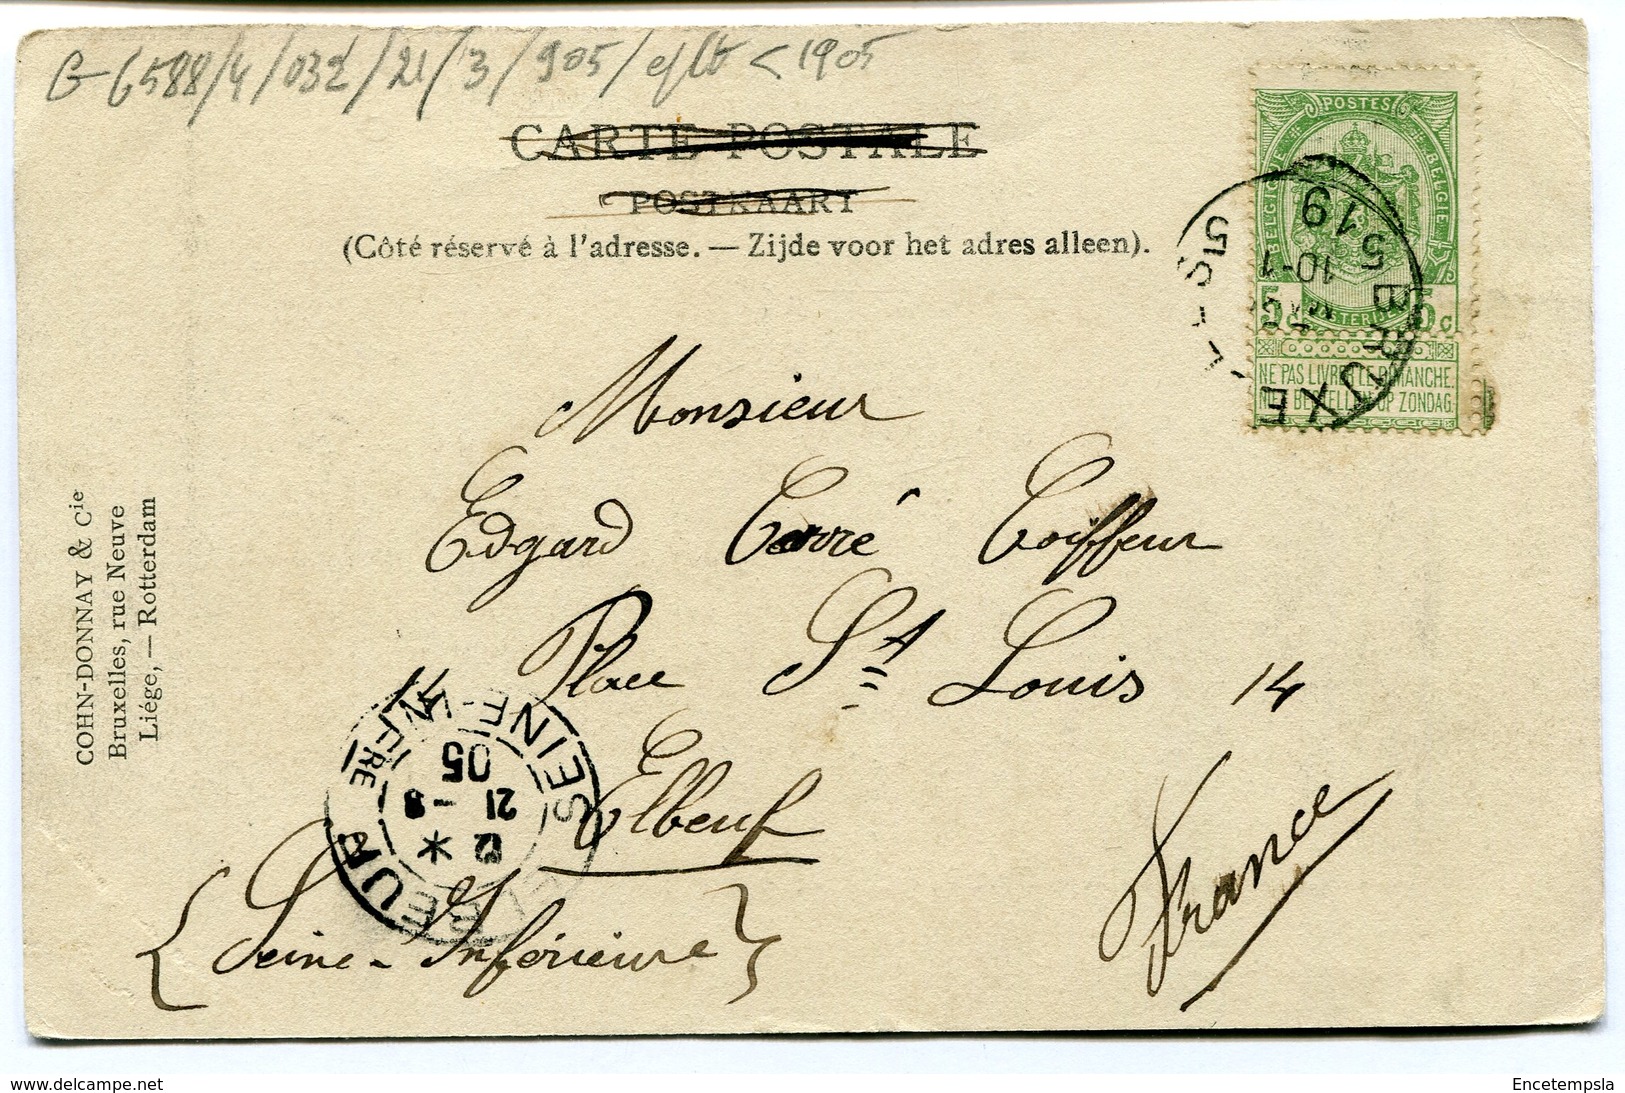 G-6588/4/032/21/3/905/eflt < 1905
CARTE POSTALE
POSTKAART
(Côté réservé à l'adresse. — Zijde voor het adres alleen).
POSTES
BELGIQUE
BELGIË
5c 5c
NE PAS LIVRER LE DIMANCHE.
NIET BESTELLEN OP ZONDAG.
BRUXE
10-11
5
19
05
Monsieur
Edgard Carré Coiffeur
Place St Louis 14
Elbeuf
(Seine-Inférieure)
France
ELBEUF
SEINE-INFRE
12
21 -8
05
COHN-DONNAY & Cie
Bruxelles, rue Neuve
Liége, — Rotterdam
delcampe.net
Encetempsla